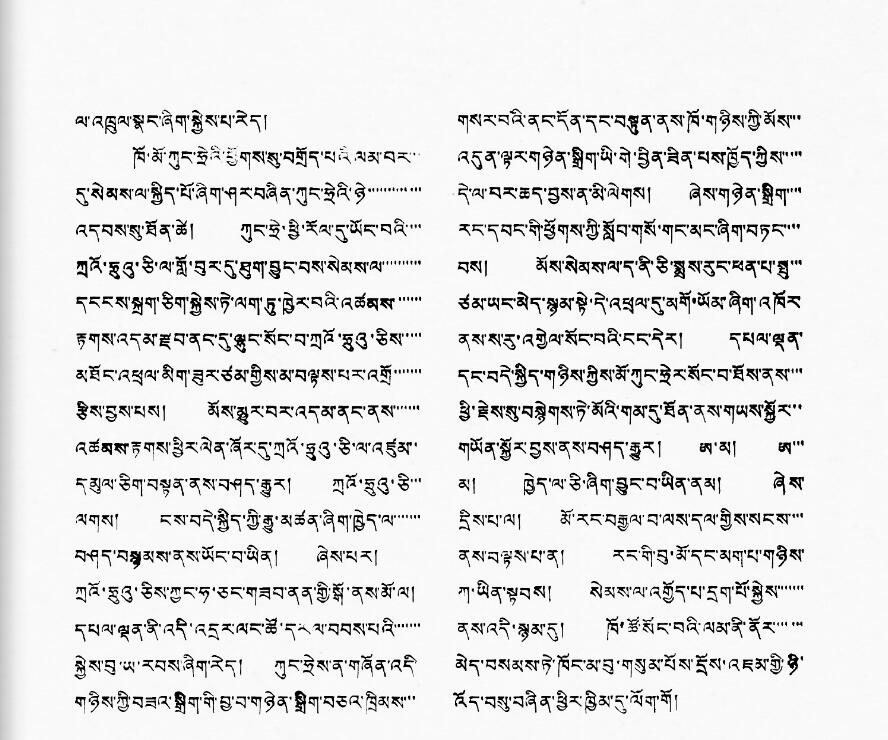 ལ་འཁྲུལ་སྣང་ཞིག་སྐྱེས་པ་རེད།
ཁོ་མོ་ཀུང་ཧྲེའི་ཕྱོགས་སུ་བགྲོད་པའི་ལམ་བར་
དུ་སེམས་ལ་སྐྱིད་པོ་ཞིག་ཤར་བཞིན་ཀུང་ཧྲེའི་ཉེ་
འདབས་སུ་ཐོན་ཚེ། ཀུང་ཧྲེ་ཕྱི་རོལ་དུ་ཡོང་བའི་
ཀྲའོ་ཧྥུའུ་ཅི་ལ་གློ་བུར་དུ་ཐུག་བྱུང་བས་སེམས་ལ་
དངངས་སྐྲག་ཅིག་སྐྱེས་ཏེ་ལག་ཏུ་ཁྱེར་བའི་འཚམས་
རྟགས་འདམ་རྫབ་ནང་དུ་ལྷུང་སོང་བ་ཀྲའོ་ཧྥུའུ་ཅིས་
མཐོང་འཕྲལ་མིག་ཟུར་ཙམ་གྱིས་མ་བལྟས་པར་འགྲོ་
རྩིས་བྱས་པས། མོས་མྱུར་བར་འདམ་ནང་ནས་
འཚམས་རྟགས་ཕྱིར་ལེན་ཞོར་དུ་ཀྲའོ་ཧྥུའུ་ཅི་ལ་འཛུམ་
དམུལ་ཅིག་བསྟན་ནས་བཤད་རྒྱུར། ཀྲའོ་ཧྥུའུ་ཅི་
ལགས། ངས་བདེ་སྐྱིད་ཀྱི་རྒྱུ་མཚན་ཞིག་ཁྱེད་ལ་
བཤད་བསྙམས་ནས་ཡོང་བ་ཡིན། ཞེས་པར།
ཀྲའོ་ཧྥུའུ་ཅིས་ཀྱང་ཧ་ཅང་གཟབ་ནན་གྱི་སྒོ་ནས་མོ་ལ།
དཔལ་ལྡན་ནི་འདི་འདྲར་ལང་ཚོ་དར་ལ་བབས་པའི་
སྐྱེས་བུ་ཡ་རབས་ཞིག་རེད། ཀུང་ཧྲེས་ན་གཞོན་འདི་
གཉིས་ཀྱི་བཟའ་སྒྲིག་གི་བྱ་བ་གཉེན་སྒྲིག་བཅའ་ཁྲིམས་
གསར་བའི་ནང་དོན་དང་བསྟུན་ནས་ཁོ་གཉིས་ཀྱི་མོས་
འདུན་ལྟར་གཉེན་སྒྲིག་ཡི་གེ་བྱིན་ཟིན་པས་ཁྱོད་ཀྱིས་
དེ་ལ་བར་ཆད་བྱས་ན་མི་ལེགས། ཞེས་གཉེན་སྒྲིག་
རང་དབང་གི་ཕྱོགས་ཀྱི་སློབ་གསོ་གང་མང་ཞིག་བཏང་
བས། མོས་སེམས་ལ་ད་ནི་ཅི་སྨྲས་རུང་ཕན་པ་སྤུ་
ཙམ་ཡང་མེད་སྙམ་སྟེ་དེ་འཕྲལ་དུ་མགོ་ཡོམ་ཞིག་འཁོར་
ནས་ས་རུ་འགྱེལ་སོང་བའི་ངང་དེར། དཔལ་ལྡན་
དང་བདེ་སྐྱིད་གཉིས་ཀྱིས་མོ་ཀུང་ཧྲེར་སོང་བ་ཐོས་ནས་
ཕྱི་རྗེས་སུ་བསྙེགས་ཏེ་མོའི་གམ་དུ་ཐོན་ནས་གཡས་སྐྱོར་
གཡོན་སྐྱོར་བྱས་ནས་བཤད་རྒྱུར། ཨ་མ། ཨ་
མ། ཁྱེད་ལ་ཅི་ཞིག་བྱུང་བ་ཡིན་ནམ། ཞེས་
དྲིས་པ་ལ། མོ་རང་བརྒྱལ་བ་ལས་དལ་གྱིས་སངས་
ནས་བལྟས་པ་ན། རང་གི་བུ་མོ་དང་མག་པ་གཉིས་
ཀ་ཡིན་སྟབས། སེམས་ལ་འགྱོད་པ་དྲག་པོ་སྐྱེས་
ནས་འདི་སྙམ་དུ། ཁོ་ཚོ་སོང་བའི་ལམ་ནི་ནོར་
མེད་བསམས་ཏེ་ཁོང་མ་བུ་གསུམ་པོས་དྲོས་འཇམ་གྱི་ཉི་
འོད་བསུ་བཞིན་ཕྱིར་ཁྱིམ་དུ་ལོག་གོ།